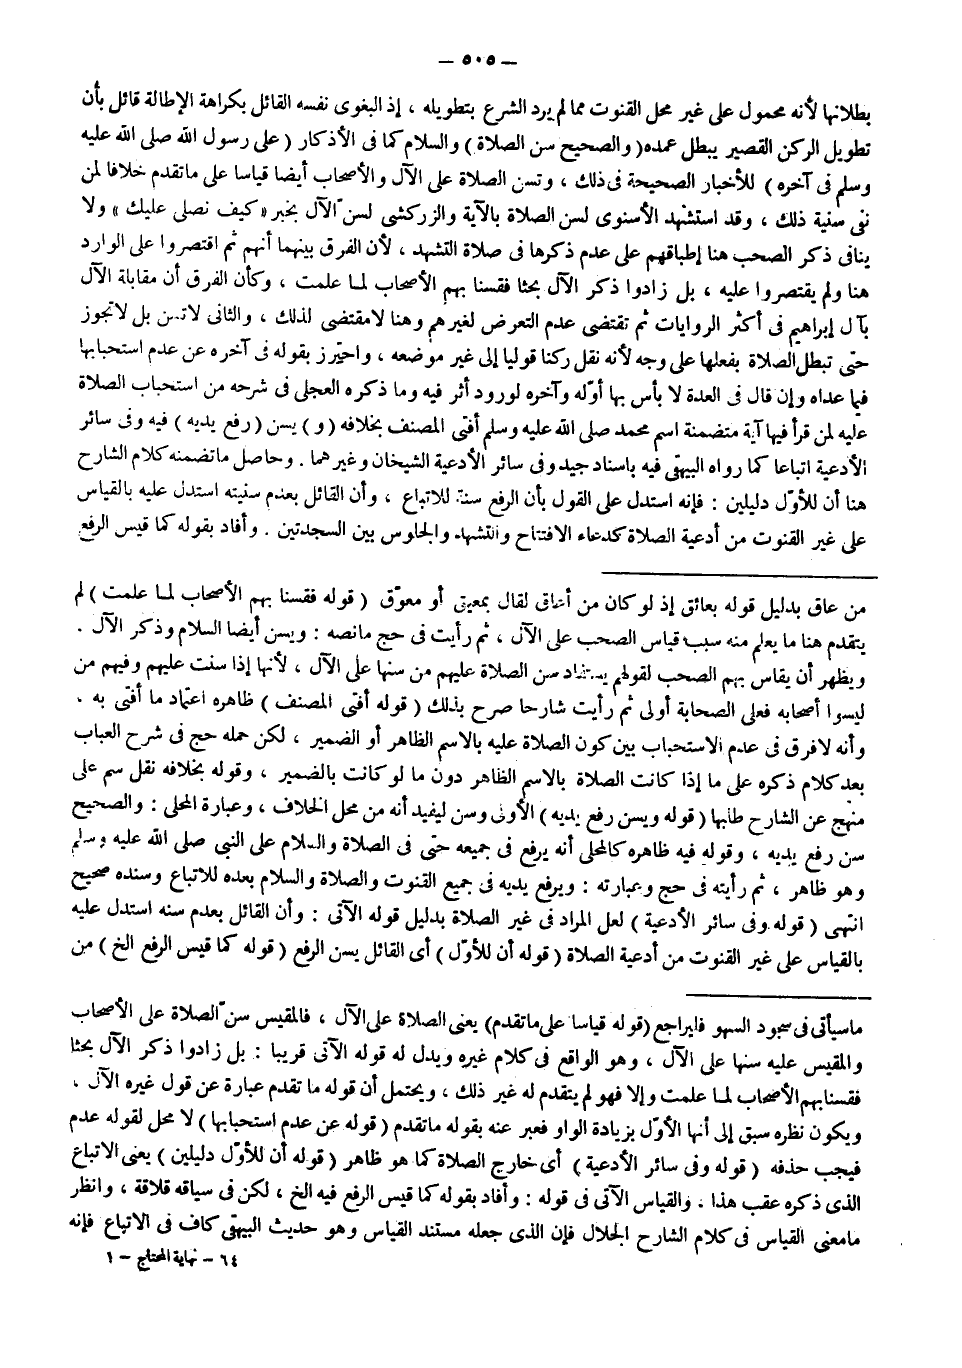 — ٥٠٥ —
بطلانها لأنه محمول على غير محل القنوت مما لم يرد الشرع بتطويله ، إذ البغوى نفسه القائل بكراهة الإطالة قائل بأن
تطويل الركن القصير يبطل عمده ( والصحيح سن الصلاة ) والسلام كما فى الأذكار ( على رسول الله صلى الله عليه
وسلم فى آخره ) للأخبار الصحيحة فى ذلك ، وتسن الصلاة على الآل والأصحاب أيضا قياسا على ماتقدم خلافا لمن
نفى سنية ذلك ، وقد استشهد الأسنوى لسن الصلاة بالآية والزركشى لسن الآل بخبر «كيف نصلى عليك» ولا
ينافى ذكر الصحب هنا إطباقهم على عدم ذكرها فى صلاة التشهد ، لأن الفرق بينهما أنهم ثم اقتصروا على الوارد
هنا ولم يقتصروا عليه ، بل زادوا ذكر الآل بحثا فقسنا بهم الأصحاب لما علمت ، وكأن الفرق أن مقابلة الآل
بآل إبراهيم فى أكثر الروايات ثم تقتضى عدم التعرض لغيرهم وهنا لامقتضى لذلك ، والثانى لاتسن بل لاتجوز
حتى تبطل الصلاة بفعلها على وجه لأنه نقل ركنا قوليا إلى غير موضعه ، واحترز بقوله فى آخره عن عدم استحبابها
فيما عداه وإن قال فى العدة لا بأس بها أوّله وآخره لورود أثر فيه وما ذكره العجلى فى شرحه من استحباب الصلاة
عليه لمن قرأ فيها آية متضمنة اسم محمد صلى الله عليه وسلم أفتى المصنف بخلافه ( و ) يسن ( رفع يديه ) فيه وفى سائر
الأدعية اتباعا كما رواه البيهقى فيه باسناد جيد وفى سائر الأدعية الشيخان وغيرهما . وحاصل ماتضمنه كلام الشارح
هنا أن للأوّل دليلين : فإنه استدل على القول بأن الرفع سنة للاتباع ، وأن القائل بعدم سنيته استدل عليه بالقياس
على غير القنوت من أدعية الصلاة كدعاء الافتتاح والتشهد والجلوس بين السجدتين . وأفاد بقوله كما قيس الرفع
من عاق بدليل قوله بعائق إذ لو كان من أعاق لقال بمعيق أو معوّق ( قوله فقسنا بهم الأصحاب لما علمت ) لم
يتقدم هنا ما يعلم منه سبب قياس الصحب على الآل ، ثم رأيت فى حج مانصه : ويسن أيضا السلام وذكر الآل .
ويظهر أن يقاس بهم الصحب لقولهم يستفاد سن الصلاة عليهم من سنها على الآل ، لأنها إذا سنت عليهم وفيهم من
ليسوا أصحابه فعلى الصحابة أولى ثم رأيت شارحا صرح بذلك ( قوله أفتى المصنف ) ظاهره اعتماد ما أفتى به .
وأنه لافرق فى عدم الاستحباب بين كون الصلاة عليه بالاسم الظاهر أو الضمير ، لكن حمله حج فى شرح العباب
بعد كلام ذكره على ما إذا كانت الصلاة بالاسم الظاهر دون ما لو كانت بالضمير ، وقوله بخلافه نقل سم على
منهج عن الشارح طلبها ( قوله ويسن رفع يديه ) الأولى وسن ليفيد أنه من محل الخلاف ، وعبارة المحلى : والصحيح
سن رفع يديه ، وقوله فيه ظاهره كالمحلى أنه يرفع فى جميعه حتى فى الصلاة والسلام على النبى صلى الله عليه وسلم
وهو ظاهر ، ثم رأيته فى حج وعبارته : ويرفع يديه فى جميع القنوت والصلاة والسلام بعده للاتباع وسنده صحيح
انتهى ( قوله وفى سائر الأدعية ) لعل المراد فى غير الصلاة بدليل قوله الآتى : وأن القائل بعدم سنه استدل عليه
بالقياس على غير القنوت من أدعية الصلاة ( قوله أن للأوّل ) أى القائل يسن الرفع ( قوله كما قيس الرفع الخ ) من
ماسيأتى فى سجود السهو فليراجع ( قوله قياسا على ماتقدم ) يعنى الصلاة على الآل ، فالمقيس سنّ الصلاة على الأصحاب
والمقيس عليه سنها على الآل ، وهو الواقع فى كلام غيره ويدل له قوله الآتى قريبا : بل زادوا ذكر الآل بحثا
فقسنا بهم الأصحاب لما علمت وإلا فهو لم يتقدم له غير ذلك ، ويحتمل أن قوله ما تقدم عبارة عن قول غيره الآل ،
ويكون نظره سبق إلى أنها الأوّل بزيادة الواو فعبر عنه بقوله ماتقدم ( قوله عن عدم استحبابها ) لا محل لقوله عدم
فيجب حذفه ( قوله وفى سائر الأدعية ) أى خارج الصلاة كما هو ظاهر ( قوله أن للأوّل دليلين ) يعنى الاتباع
الذى ذكره عقب هذا . والقياس الآتى فى قوله : وأفاد بقوله كما قيس الرفع فيه الخ ، لكن فى سياقه قلاقة ، وانظر
مامعنى القياس فى كلام الشارح الجلال فإن الذى جعله مستند القياس وهو حديث البيهقى كاف فى الاتباع فإنه
٦٤ – نهاية المحتاج – ١